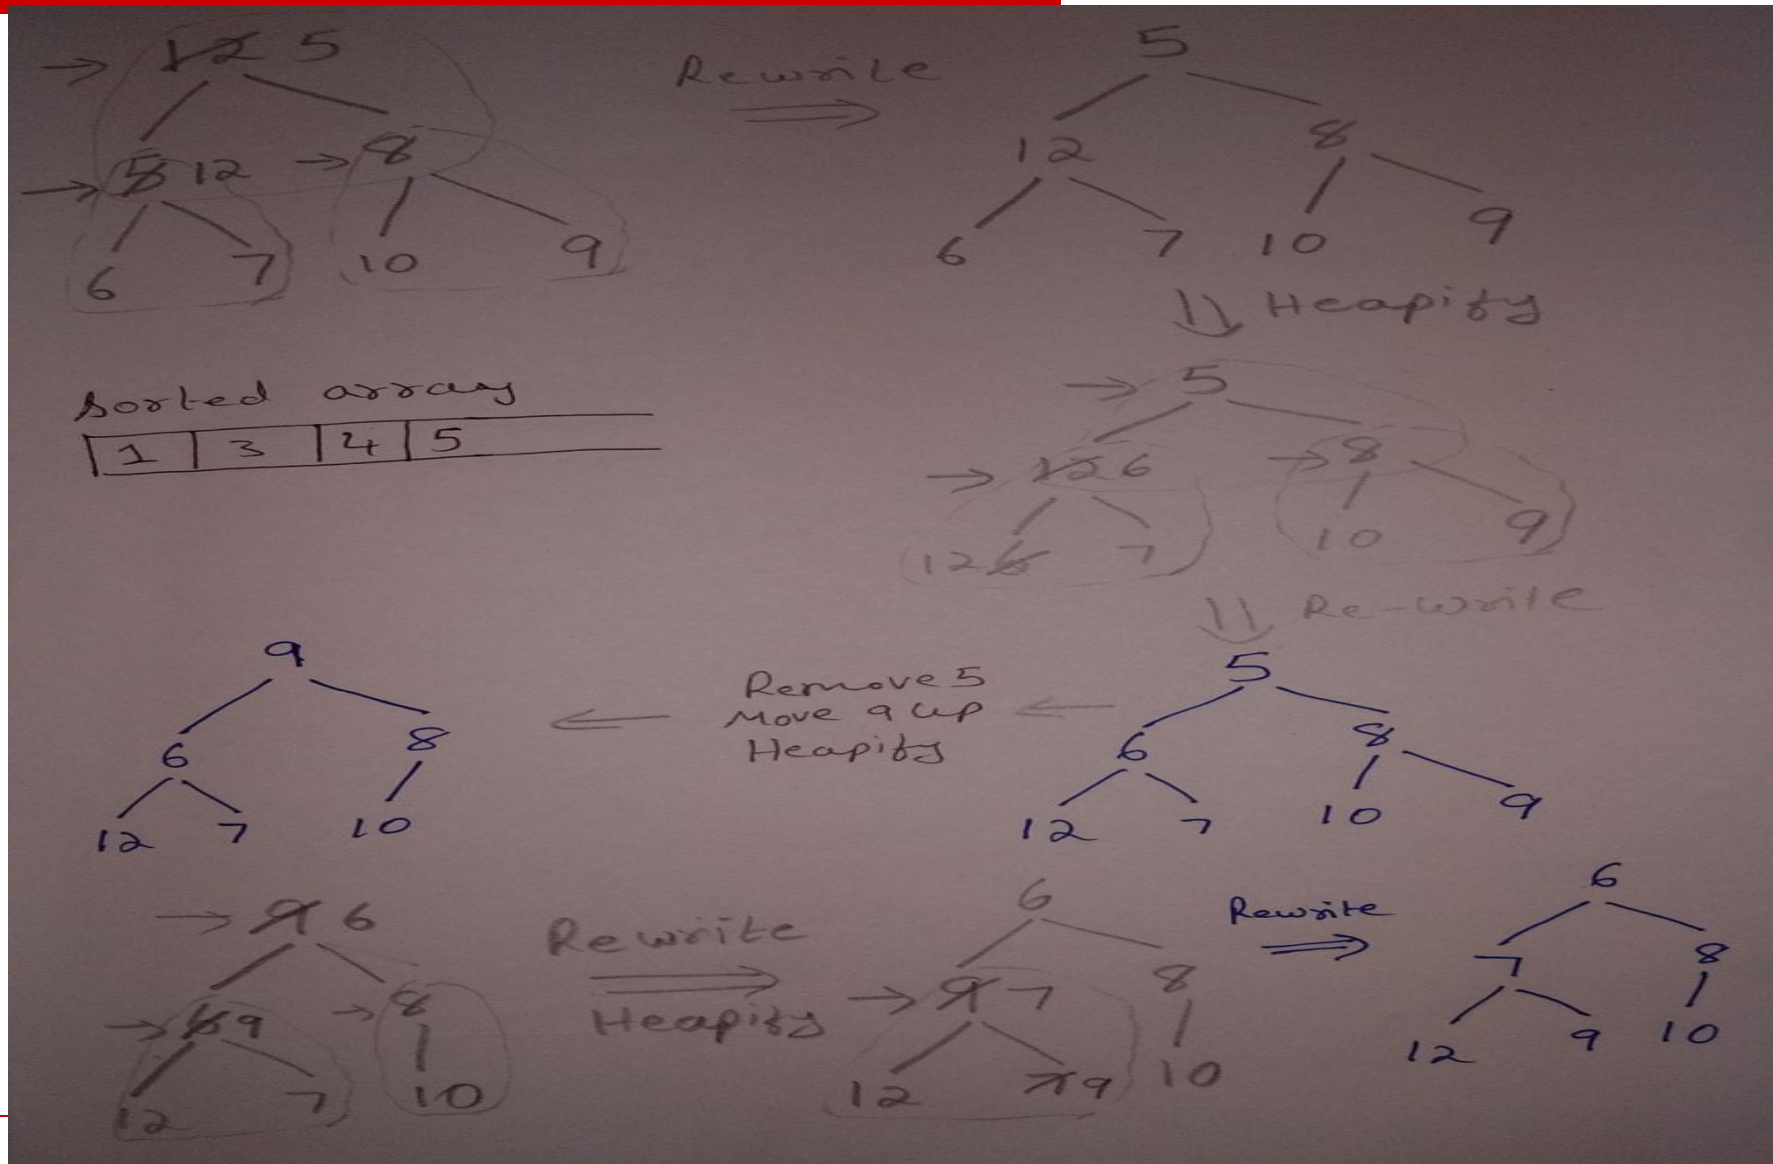 12 5
5 12 8
6 7 10 9
Rewrite
5
12 8
6 7 10 9
Heapify
Sorted array
1 3 4 5
5
12 6 8
12 6 7 10 9
Re-write
5
6 8
12 7 10 9
Remove 5
Move 9 up
Heapify
9
6 8
12 7 10
9 6
6 9 8
12 7 10
Rewriite
Heapify
6
9 7 8
12 7 9 10
Rewrite
6
7 8
12 9 10